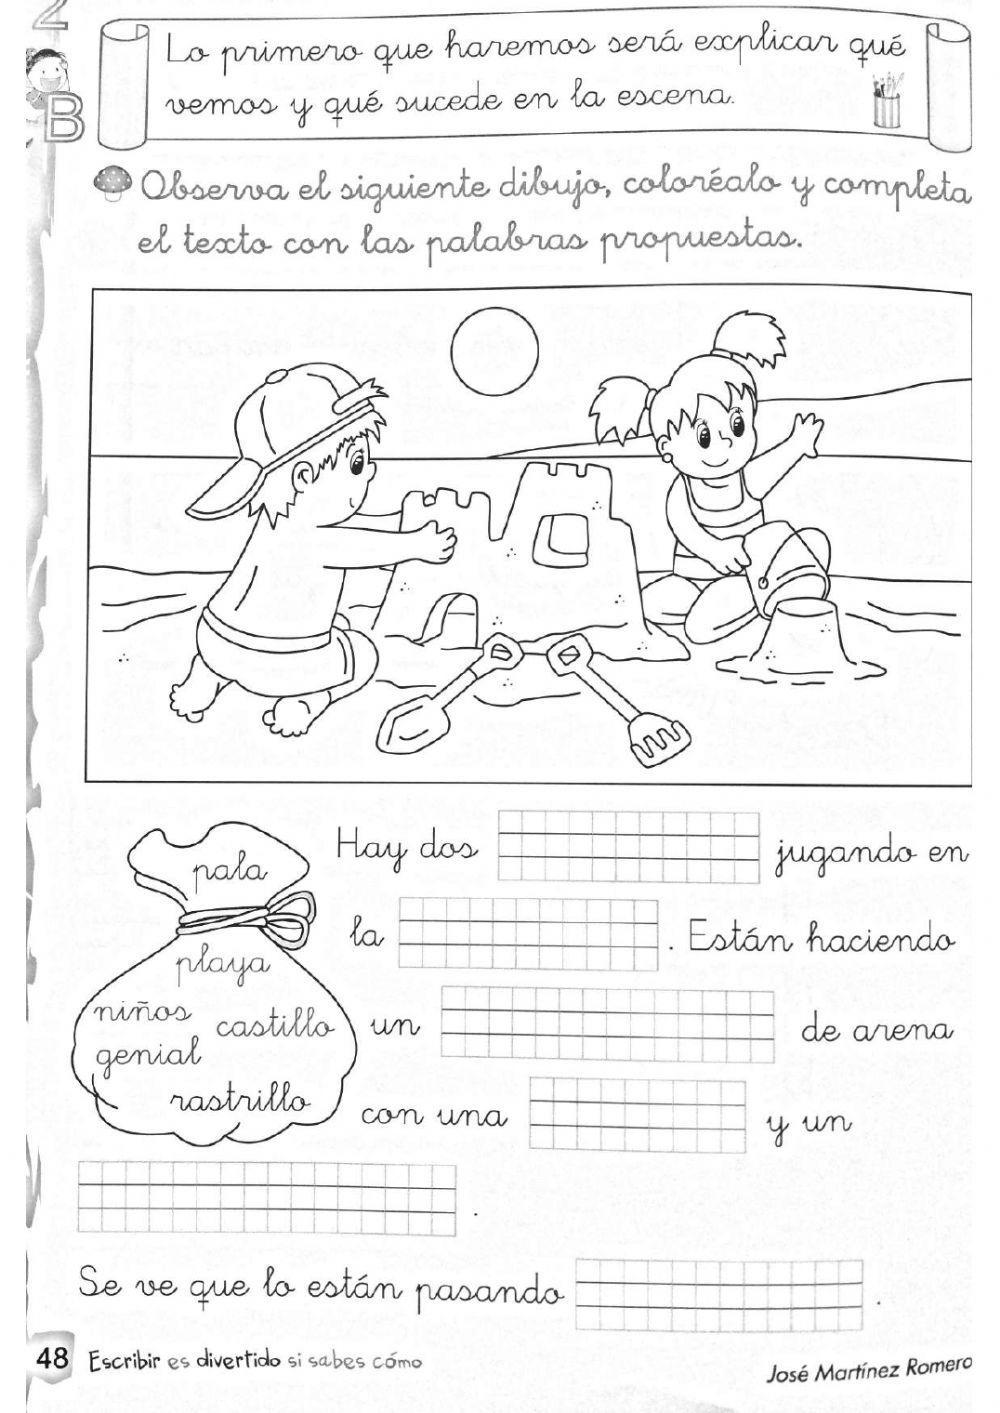 2
B
Lo primero que haremos será explicar qué
vemos y qué sucede en la escena.
Observa el siguiente dibujo, coloréalo y completa
el texto con las palabras propuestas.
pala
playa
niños
castillo
genial
rastrillo
Hay dos jugando en
la . Están haciendo
un de arena
con una y un
.
Se ve que lo están pasando .
48 Escribir es divertido si sabes cómo
José Martínez Romero